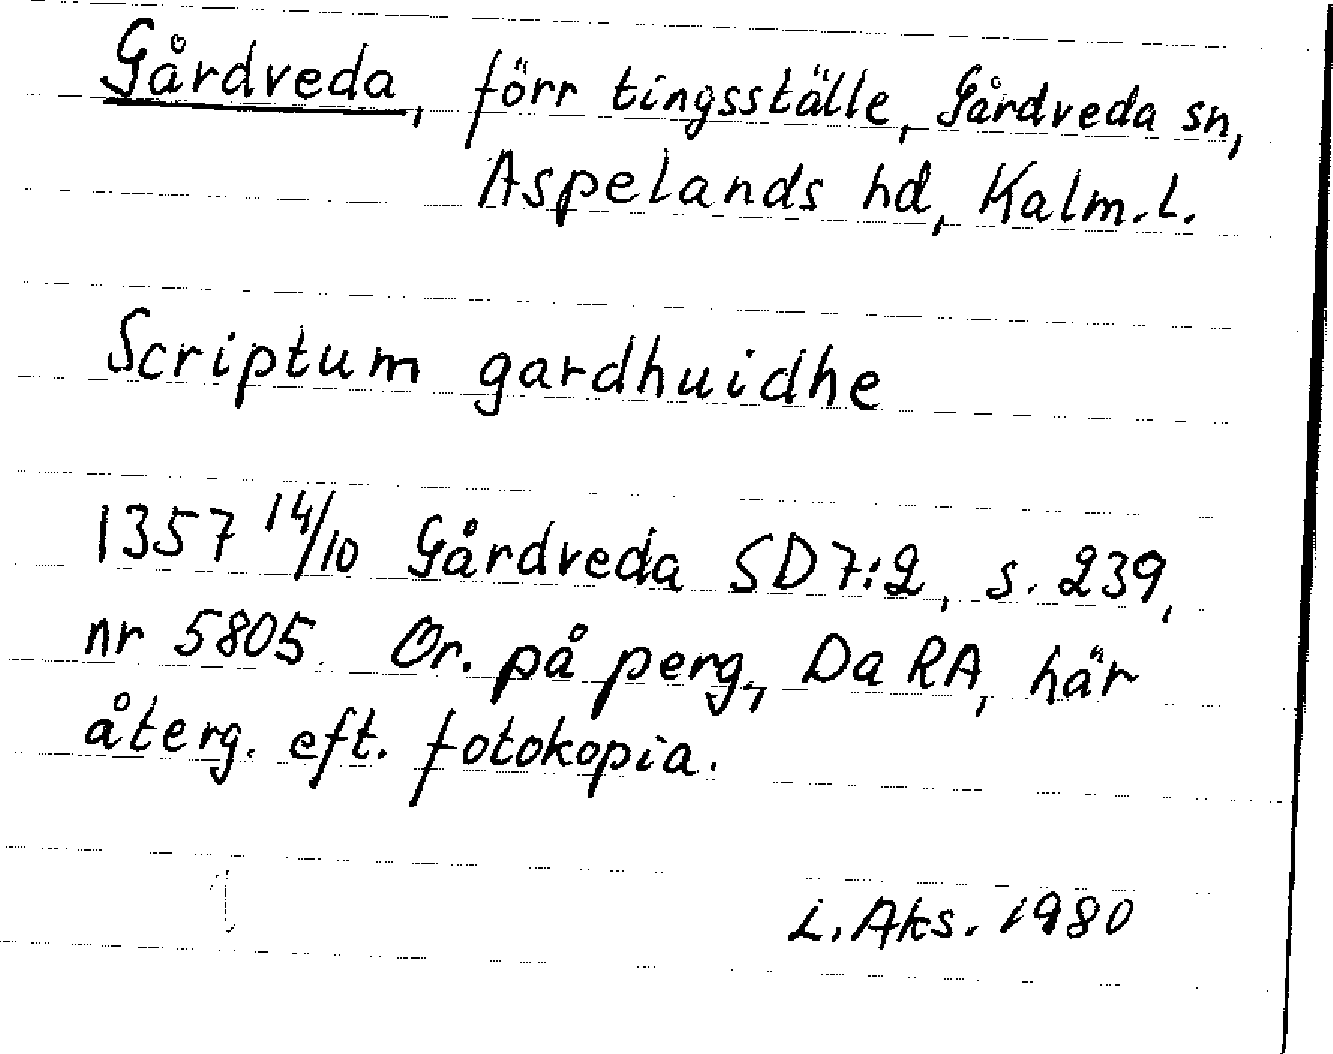 Gårdveda, förr tingsställe, Gårdveda sn,
Aspelands hd, Kalm. L.
Scriptum gardhuidhe
1357 14/10 Gårdveda SD 7:2, s. 239,
nr 5805. Or. på perg., Da RA, här
återg. eft. fotokopia.
L. Aks. 1980